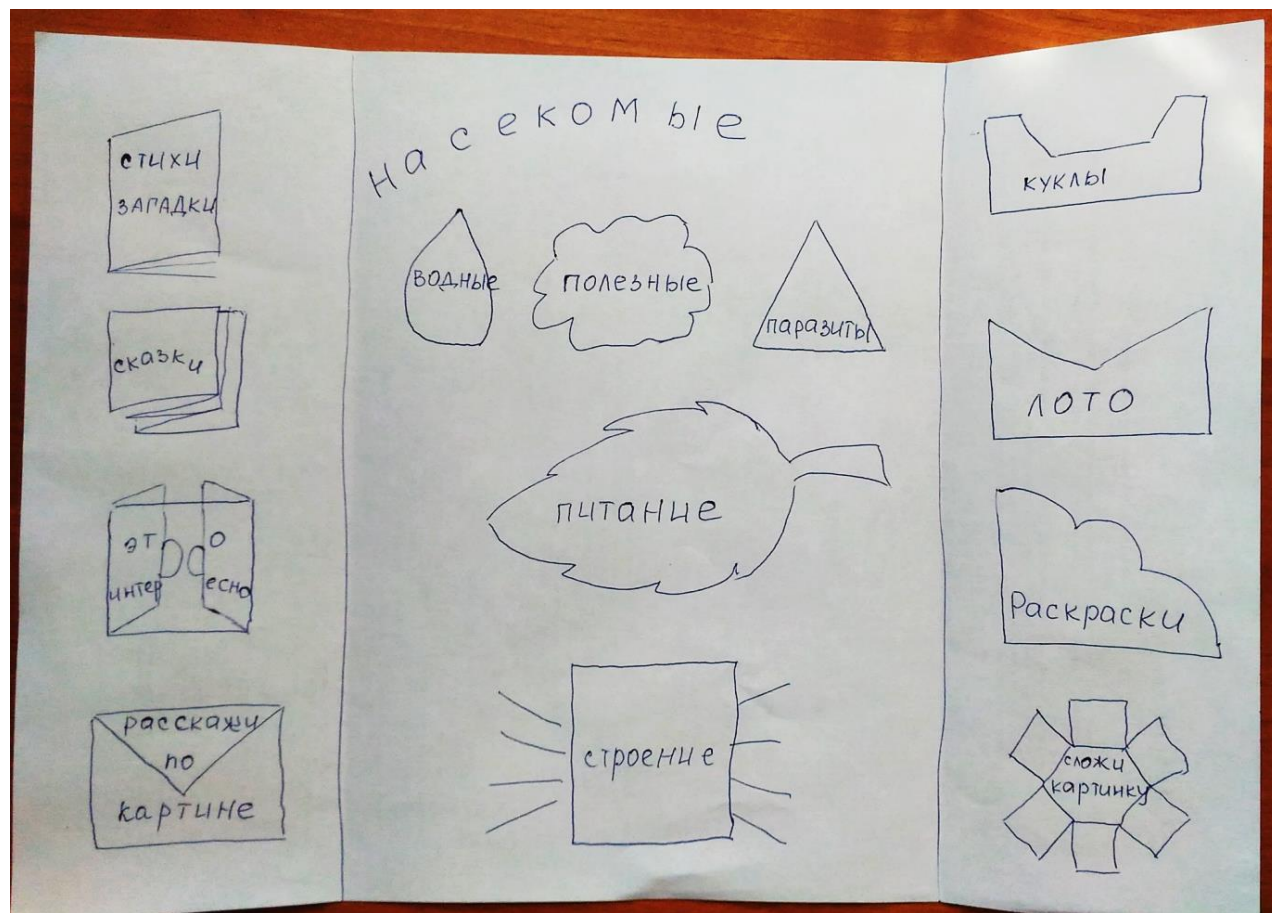 стихи
загадки
сказки
это
интересно
расскажи
по
картине
насекомые
водные
полезные
паразиты
питание
строение
куклы
лото
Раскраски
сложи
картинку